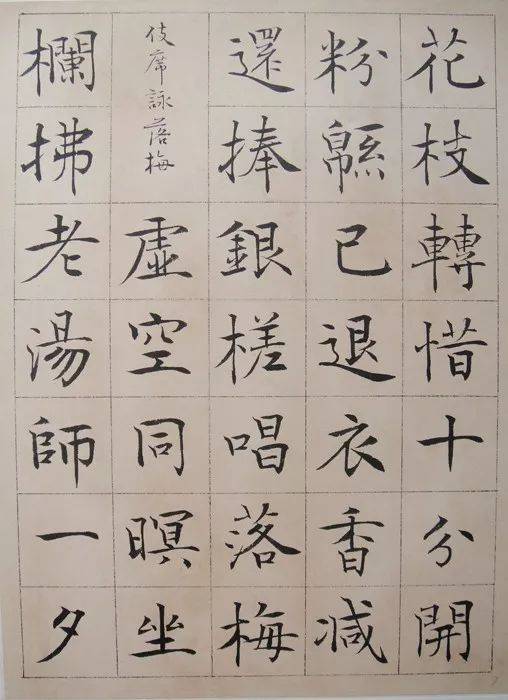 花枝轉惜十分開
粉緜已退衣香減
還捧銀槎唱落梅
伎席詠落梅
虛空同暝坐
欄拂老湯師一夕